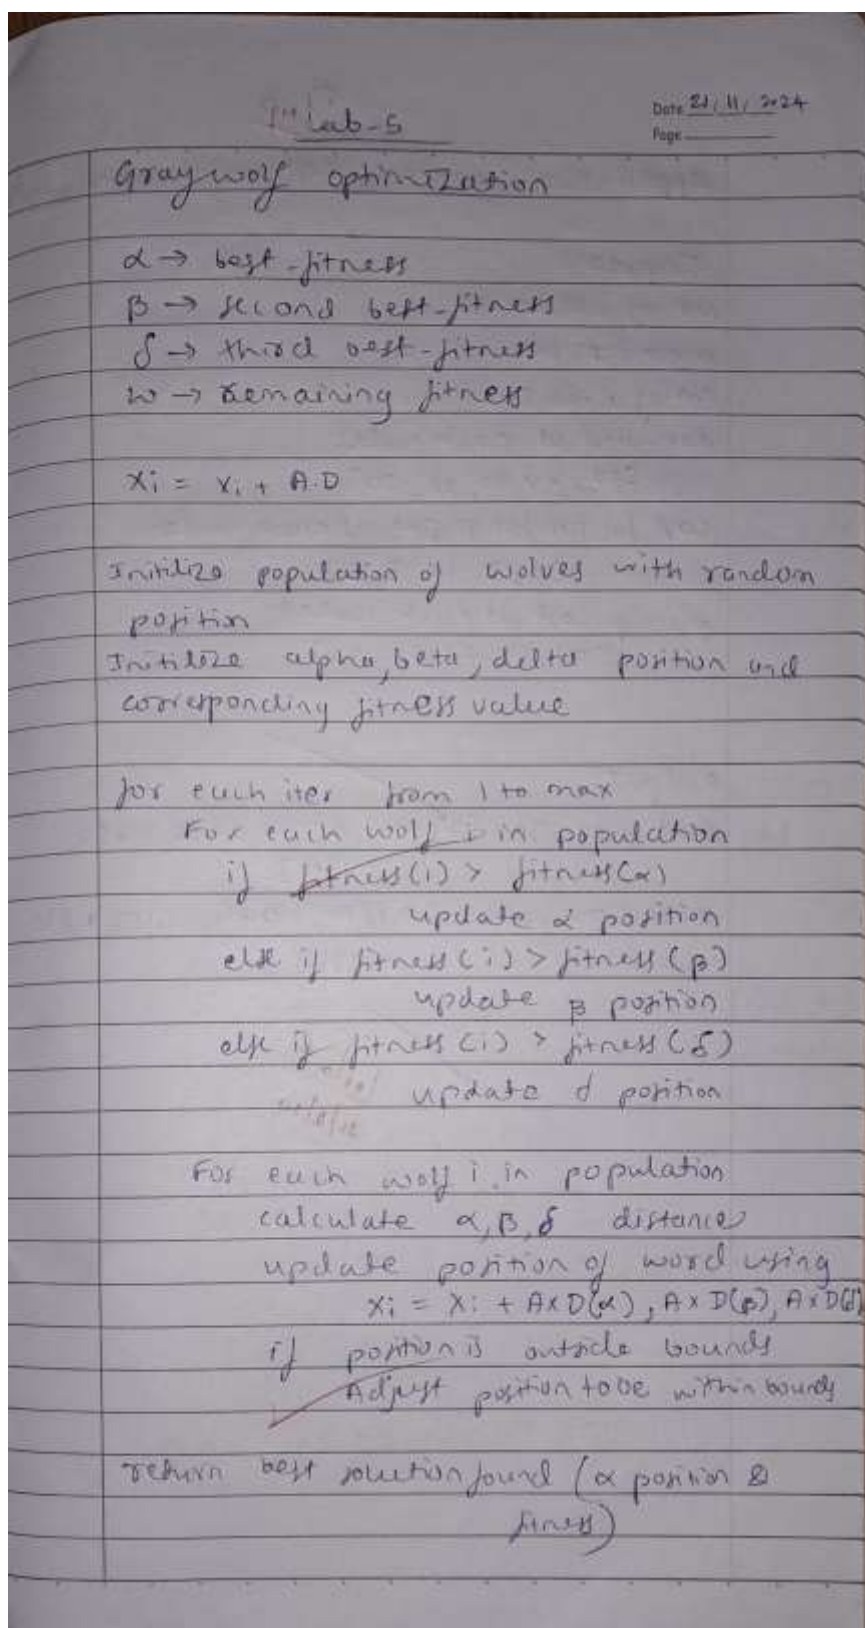 Lab-5
Date 21/11/2024
Page
Gray wolf optimization
α → best-fitness
β → second best-fitness
δ → third best-fitness
w → remaining fitness
Xi = Xi + A.D
Initilize population of wolves with random
position
Initilize alpha, beta, delta position and
corresponding fitness value
for each iter from 1 to max
For each wolf i in population
if fitness(i) > fitness(α)
update α position
else if fitness(i) > fitness(β)
update β position
else if fitness(i) > fitness(δ)
update d position
For each wolf i in population
calculate α, β, δ distance
update position of word using
Xi = Xi + A×D(α), A×D(β), A×D(δ)
if position is outside bounds
Adjust position to be within bounds
return best solution found (α position &
fitness)